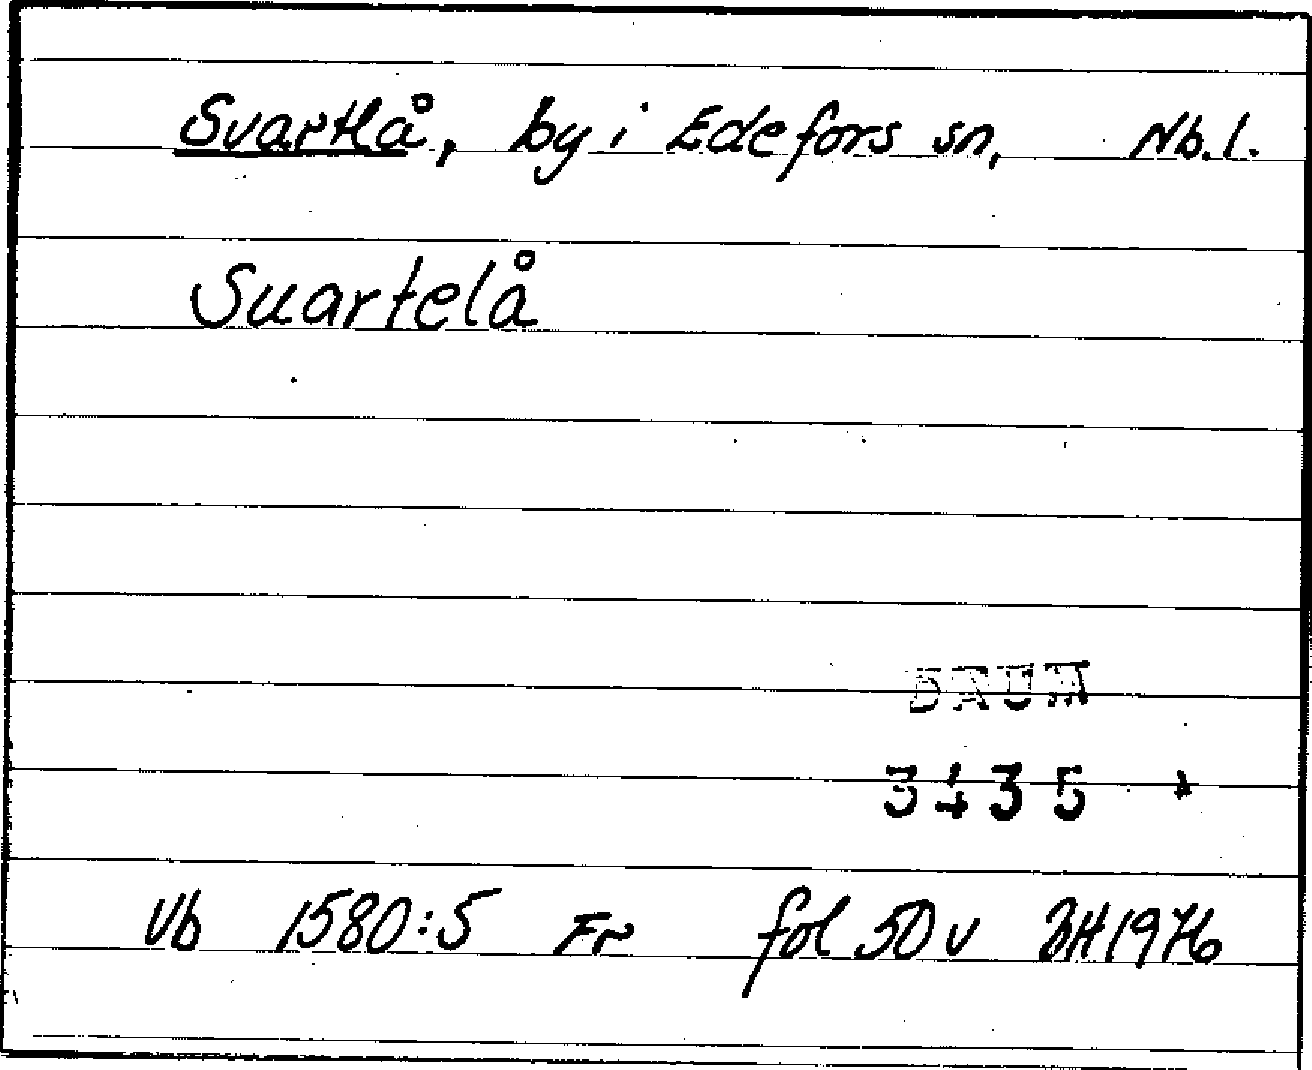 Svartlå, by i Edefors sn, Nb.l.
Suartelå
DAUM
3435
Vb 1580:5 Fr fol 50 v BH 1976